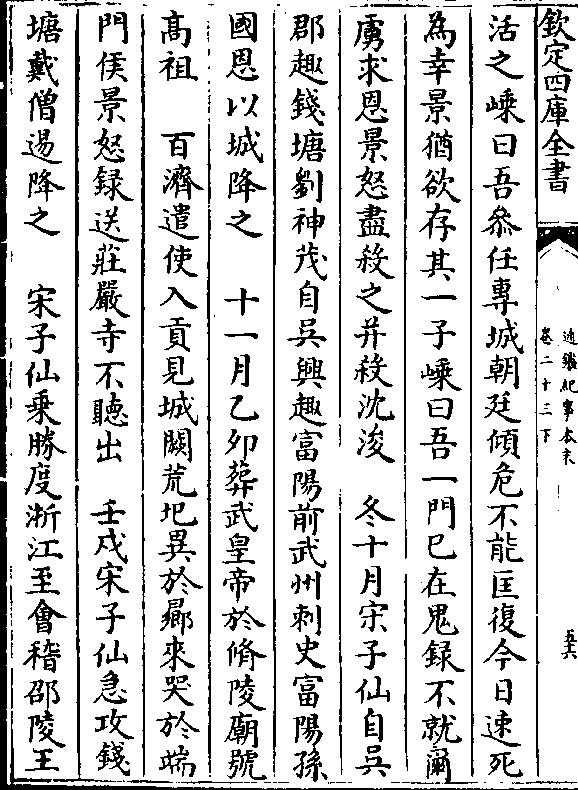 欽定四庫全書
通鑑紀事本末
卷二十三下
五六
活之嵊曰吾叅任專城朝廷傾危不能匡復今日速死
為幸景猶欲存其一子嵊曰吾一門已在鬼録不就爾
虜求恩景怒盡殺之并殺沈浚　冬十月宋子仙自吳
郡趣錢塘劉神茂自吳興趣富陽前武州刺史富陽孫
國恩以城降之　十一月乙卯葬武皇帝於脩陵廟號
高祖　百濟遣使入貢見城闕荒圯異於鄉來哭於端
門侯景怒録送莊嚴寺不聽出　壬戍宋子仙急攻錢
塘戴僧逷降之　宋子仙乘勝度浙江至會稽邵陵王